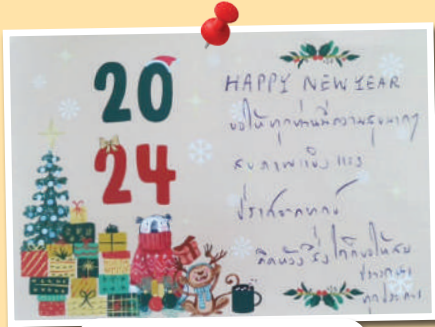 20
24
HAPPY NEW YEAR
ขอให้ทุกท่านมีความสุขมากๆ
สุขภาพแข็งแรง
ปราศจากทุกข์
คิดหวังสิ่งใดก็ขอให้สม
ปรารถนา
ทุกประการ